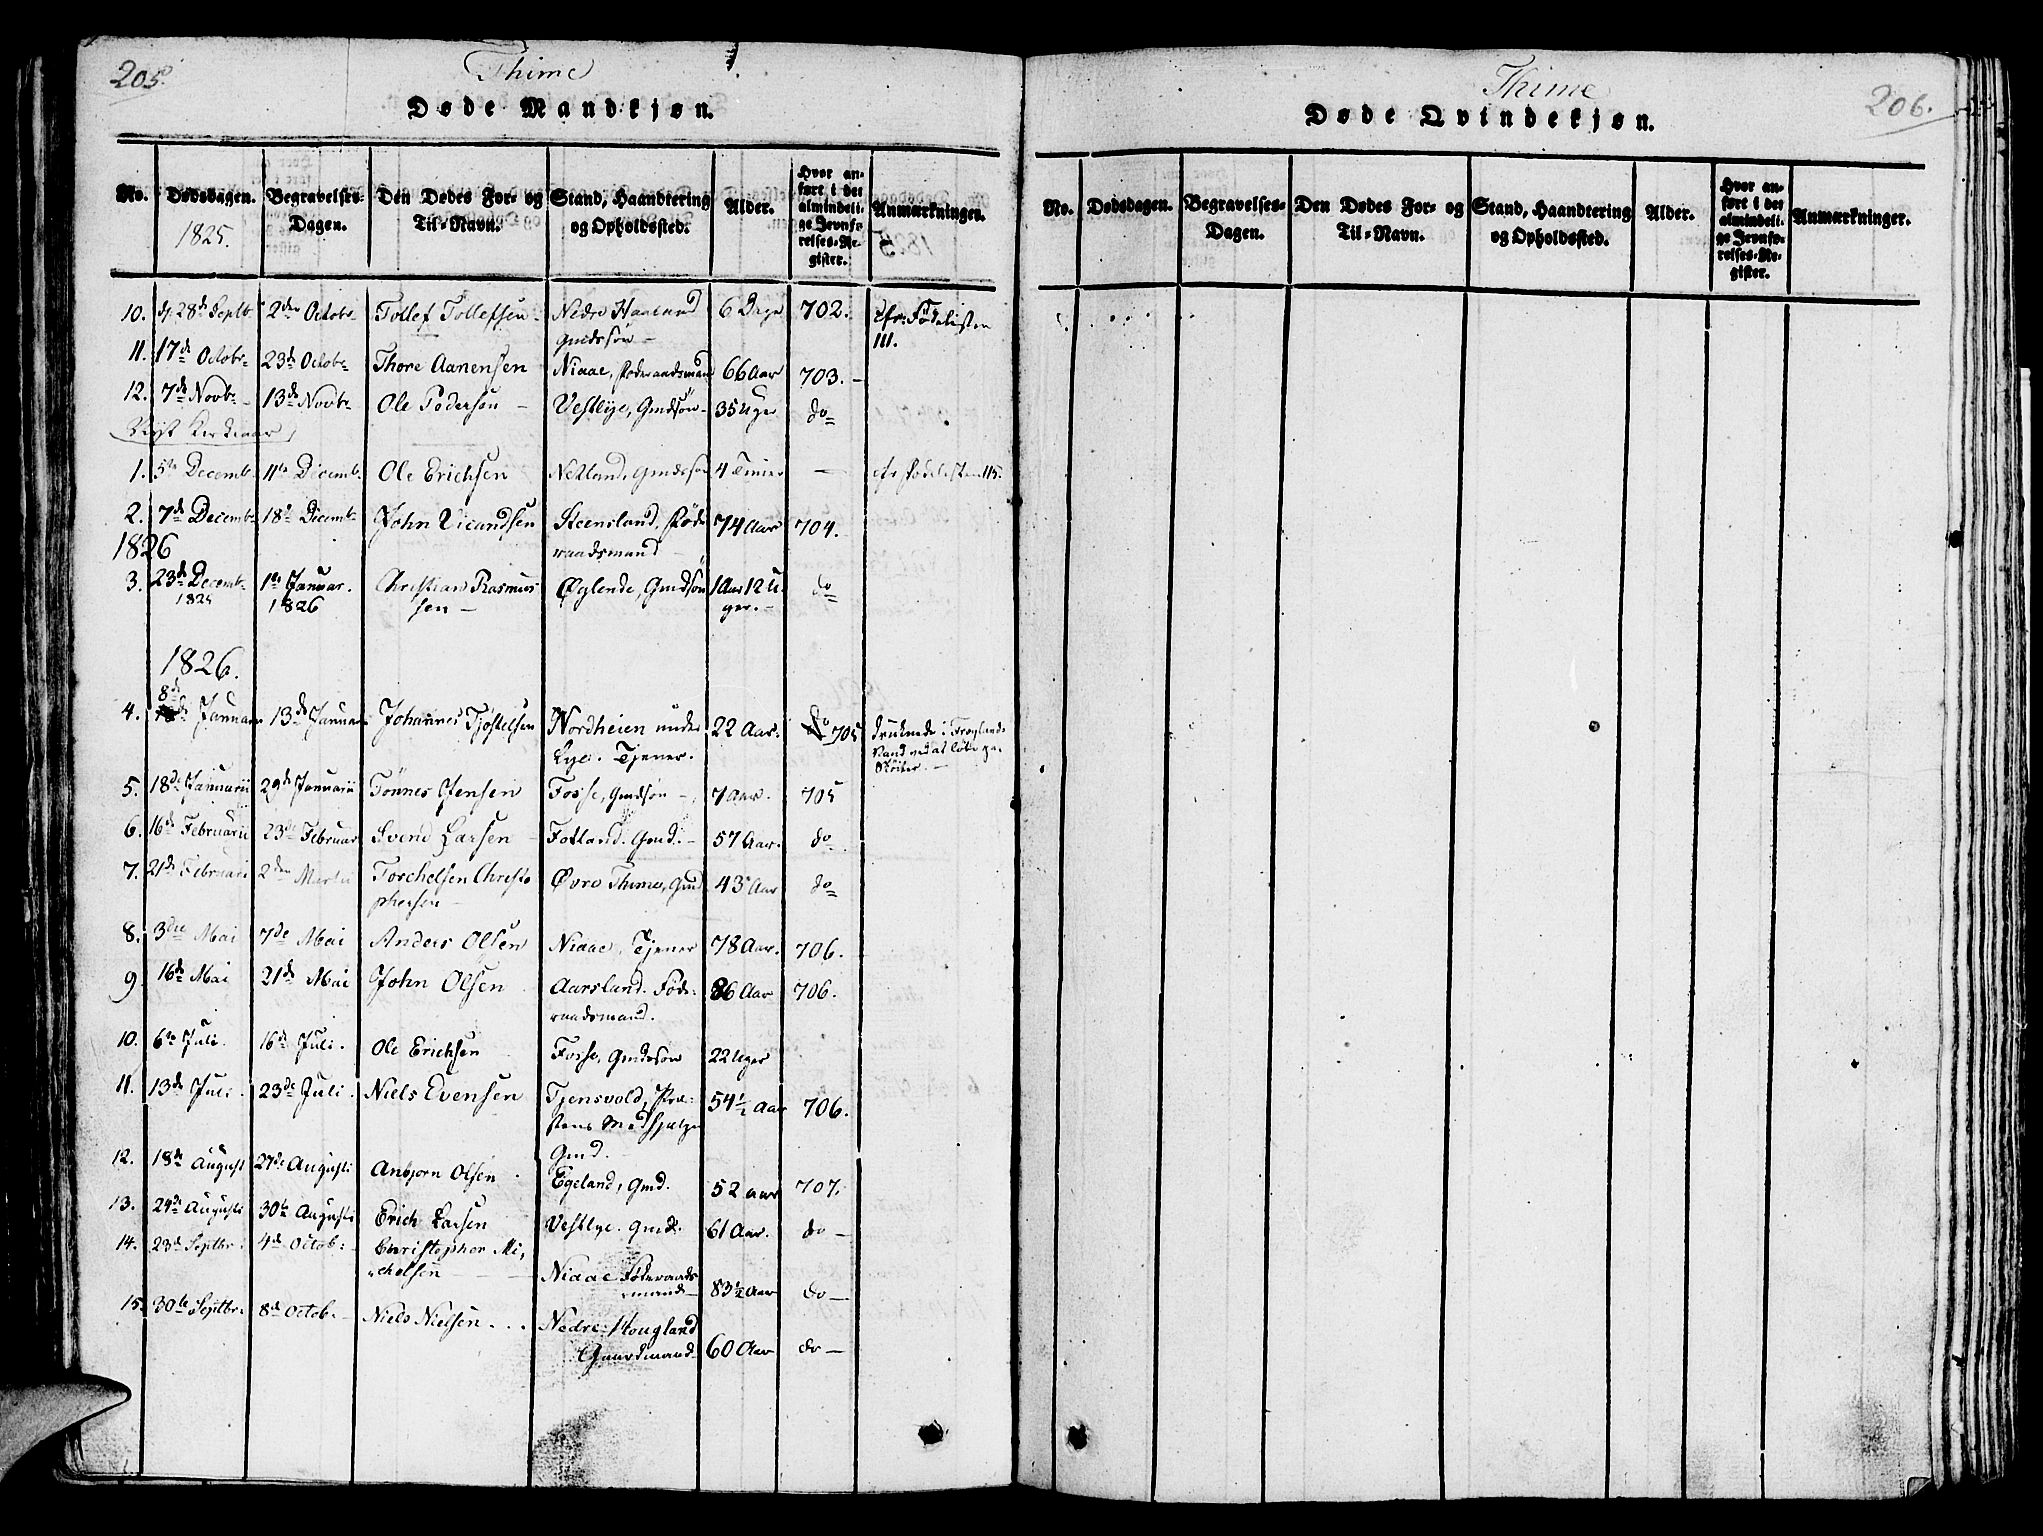 205.
Thime
Døde Mandkjøn.
No. Dødsdagen. Begravelses-Dagen. Den Dødes For- og Til-Navn. Stand, Haandtering og Opholdssted. Alder. Hvor anført i det almindelige Jevnførelses-Register. Anmærkninger.
1825.
10. d. 28de Septbr 2den Octobr Tollef Tollefsen Nedre Haaland 6 Dage 702. cfr. Fødelisten
gmdssøn 111.
11. 17de Octobr 23de Octobr Thore Aanensen Niaae, Føderaadsmand 66 Aar 703.
12. 7de Novbr 13de Novbr Ole Pedersen Vestlye, Gmdsøn 35 Uger do
Nyt Kirkeaar
1. 5te Decembr 11te Decembr Ole Erichsen Netland, Gmdssøn 4 Timer — cfr Fødelisten 115.
2. 7de Decembr 18de Decembr John Vicandsen Steensland, Føde 74 Aar 704.
raadsmand
1826
3. 23de Decembr 1ste Januar. Christian Rasmus Øglende, Gmdsøn 1 Aar 12 U do
1825 1826 sen ger.
1826.
8de
4. Januar 13de Januar Johannes Tjøstelsen Nordheien under 22 Aar. do 705 druknede i Frøylands
Lye. Tjener. Vand ved at løbe paa
Skøiter.
5. 18de Januarii 29de Januarii Tønnes Ofensen Fosse, Gmdsøn 7 Aar. 705
6. 16de Februarii 23de Februar Svend Larsen Fotland. Gmd. 57 Aar. do
7. 21de Februari 2den Martii Torchelsen Christo Øvre Thime, Gmd 43 Aar do
phersen
8. 3die Mai 7de Mai Anders Olsen Niaae, Tjener 78 Aar. 706.
9. 16de Mai 21de Mai John Olsen Aarsland. Føde- 86 Aar 706.
raadsmand.
10. 6te Juli. 16de Juli. Ole Erichsen Fosse, Gmdssøn 22 Uger
11. 13de Juli. 23de Juli. Niels Evensen Tjensvold, Præ- 54 1/2 Aar 706.
stens Medhjelper
Gmd.
12. 18de August 27de Augusti Anbjørn Olsen Egeland, Gmd. 52 Aar 707.
13. 24de Augusti 30te Augusti Erich Larsen Vestlye. Gmd. 61 Aar. do
14. 23de Septbr. 4de Octob: Christopher Mi,
chelsen Niaae Føderaads
mand 83 1/2 Aar do
15. 30te Septbr. 8de Octob. Niels Nielsen Nedre Hougland
Gaardmand 60 Aar do
Thime
206.
Døde Qvindekjøn.
No. Dødsdagen. Begravelses-Dagen. Den Dødes For- og Til-Navn. Stand, Haandtering og Opholdssted. Alder. Hvor anført i det almindelige Jevnførelses-Register. Anmærkninger.